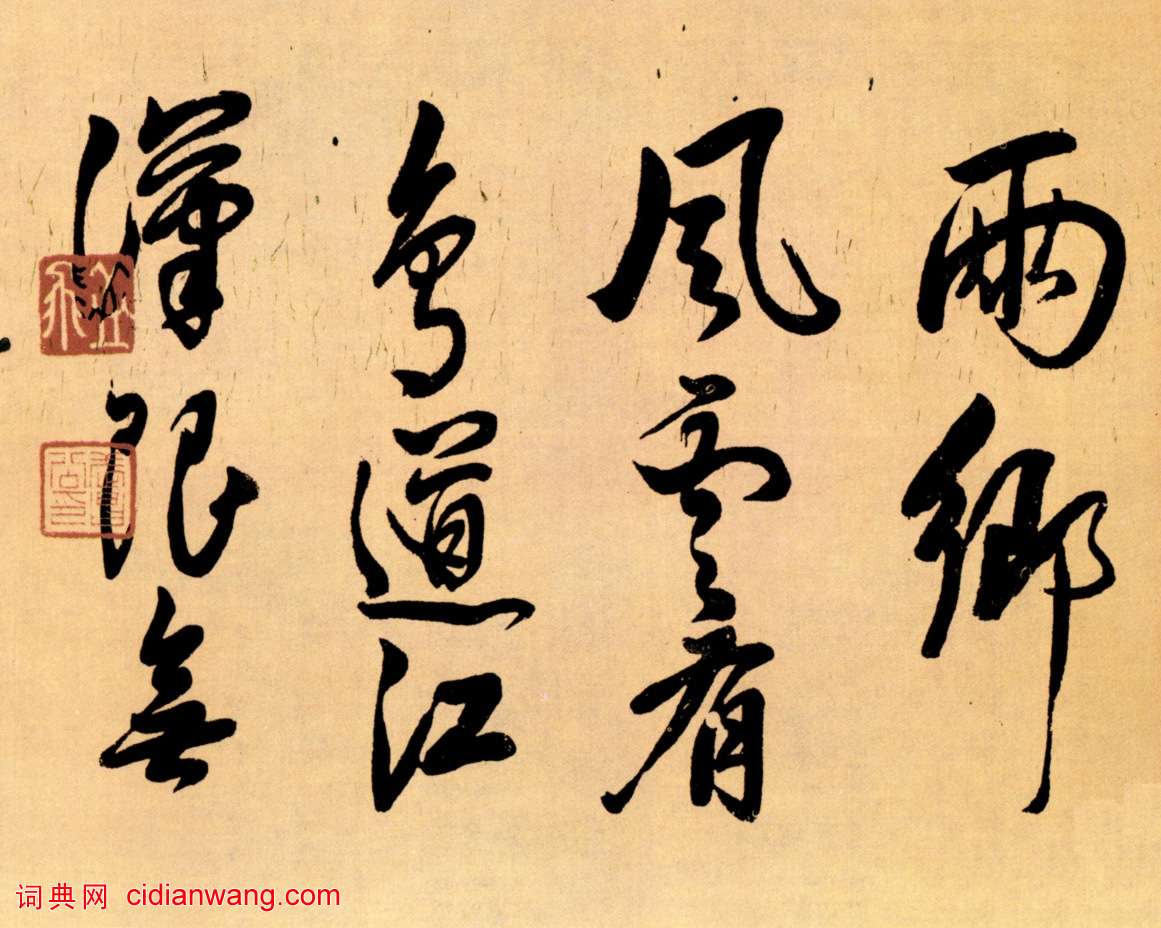 兩鄉
風雲有
鳥道江
漢限無
词典网 cidianwang.com